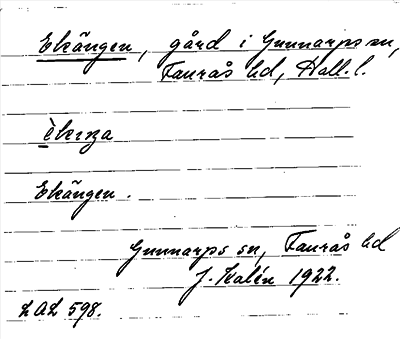 Ekängen, gård i Gunnarps sn,
Faurås hd, Hall. l.
Ekängen.
Gunnarps sn, Faurås hd
J. Kalén 1922.
LAL 598.